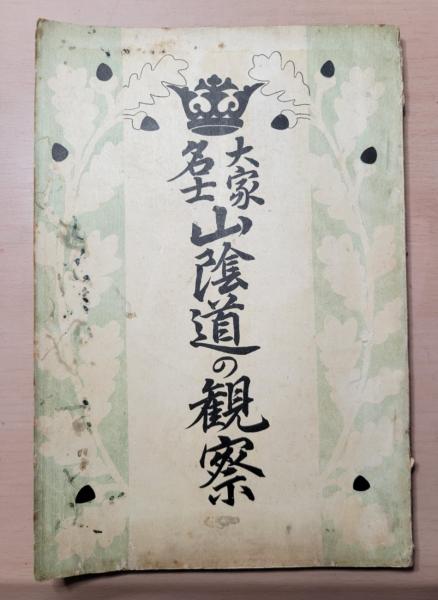 大家
名士
山陰道の観察